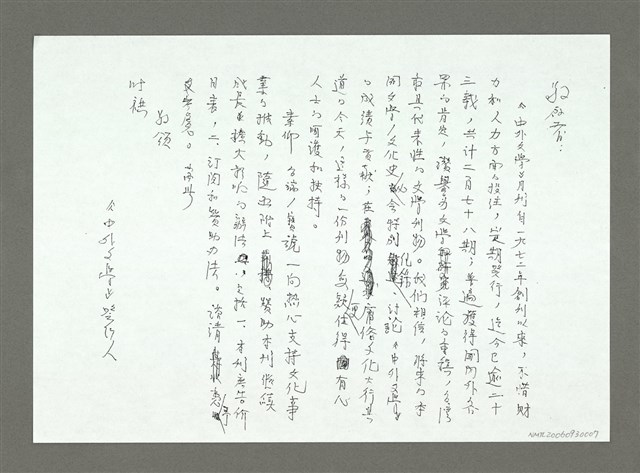 敬啟者：
《中外文學》月刊自一九七二年創刊以來，不惜財
力和人力方面的投注，定期發行，迄今已逾二十
三載，共計二百七十八期，普遍獲得國內外各
界的肯定，譽為文學評論的重鎮，台灣
最具代表性的文學刊物。我們相信，將來的本
國文學／文化史必會特別討論《中外文學》
的成績與貢獻，在庸俗文化大行其
道的今天，這樣的一份刊物更值得有心
人士的呵護和扶持。
素仰 貴號一向熱心支持文化事
業的推動，隨函附上贊助本刊繼續
成長並擴大影響的辦法，包括一、本刊廣告價
目表，二、訂閱和贊助辦法。敬請惠予
。耑此
敬頌
時祺
《中外文學》發行人
NMTL20060930007